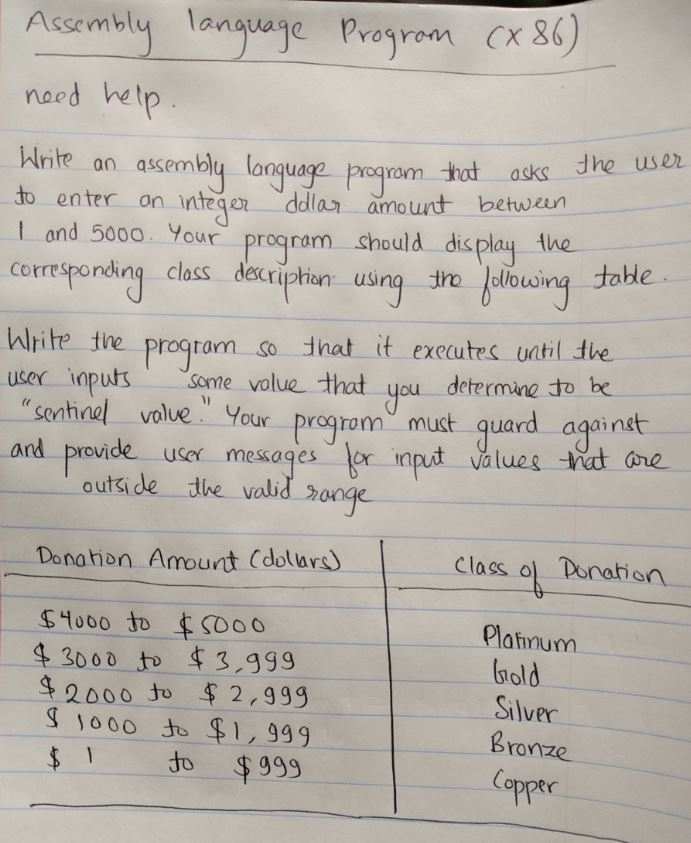 Assembly language Program (x 86)
need help.
Write an assembly language program that asks the user
to enter an integer dollar amount between
1 and 5000. Your program should display the
corresponding class description using the following table.
Write the program so that it executes until the
user inputs some value that you determine to be
"sentinel value." Your program must guard against
and provide user messages for input values that are
outside the valid range
Donation Amount (dollars) Class of Donation
$4000 to $5000 Platinum
$3000 to $3,999 Gold
$2000 to $2,999 Silver
$1000 to $1,999 Bronze
$1 to $999 Copper